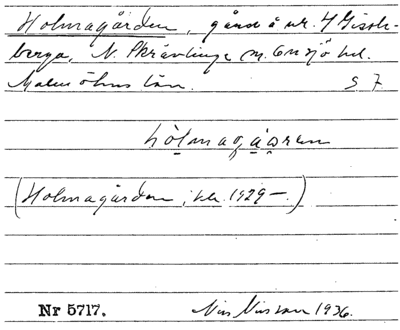 Holmagården, gård å nr. 4 Gissle-
berga, N. Skrävlinge sn. Oxie hd.
Malmöhus län. S 7
hòlmagạ̊ạren
(Holmagården, kla. 1929 —.)
Nr 5717. Nils Nilsson 1936.